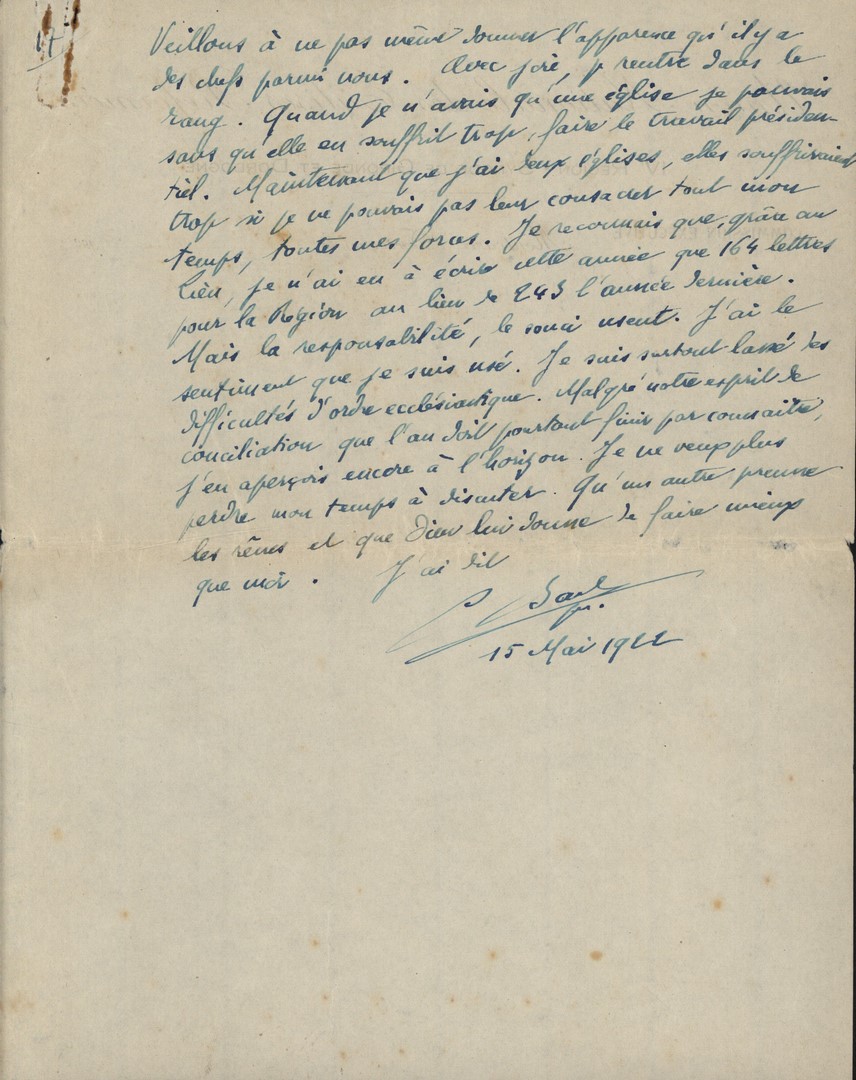 17
Veillons à ne pas même donner l'apparence qu'il y a
des chefs parmi nous. Avec joie, je rentre dans le
rang. Quand je n'avais qu'une église je pouvais
sans qu'elle en souffrit trop, faire le travail présiden-
tiel. Maintenant que j'ai deux églises, elles souffriraient
trop si je ne pouvais pas leur consacrer tout mon
temps, toutes mes forces. Je reconnais que, grâce au
Lien, je n'ai eu à écrire cette année que 164 lettres
pour la Région au lieu de 243 l'année dernière.
Mais la responsabilité, le souci usent. J'ai le
sentiment que je suis usé. Je suis surtout lassé des
difficultés d'ordre ecclésiastique. Malgré notre esprit de
conciliation que l'on doit pourtant finir par connaître,
j'en aperçois encore à l'horizon. Je ne veux plus
perdre mon temps à discuter. Qu'un autre prenne
les rênes et que Dieu lui donne de faire mieux
que moi. J'ai dit
15 Mai 1922